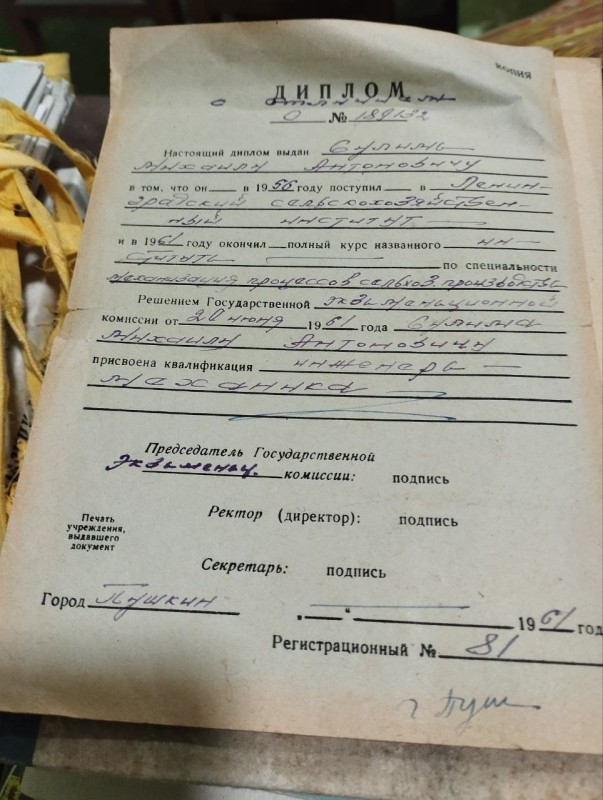 КОПИЯ
ДИПЛОМ
с отличием
О № 189132
Настоящий диплом выдан Сулима
Михаилу Антоновичу
в том, что он в 1956 году поступил в Ленин-
градский сельскохозяйствен-
ный институт
и в 1961 году окончил полный курс названного ин-
ститута по специальности
механизация процессов сельхоз. производства
Решением Государственной экзаменационной
комиссии от 20 июня 1961 года Сулима
Михаилу Антоновичу
присвоена квалификация инженера-
механика
Председатель Государственной
экзаменац. комиссии: подпись
Ректор (директор): подпись
Печать
учреждения,
выдавшего
документ
Секретарь: подпись
Город Пушкин
„ “ 1961 год
Регистрационный № 81
г Пуш